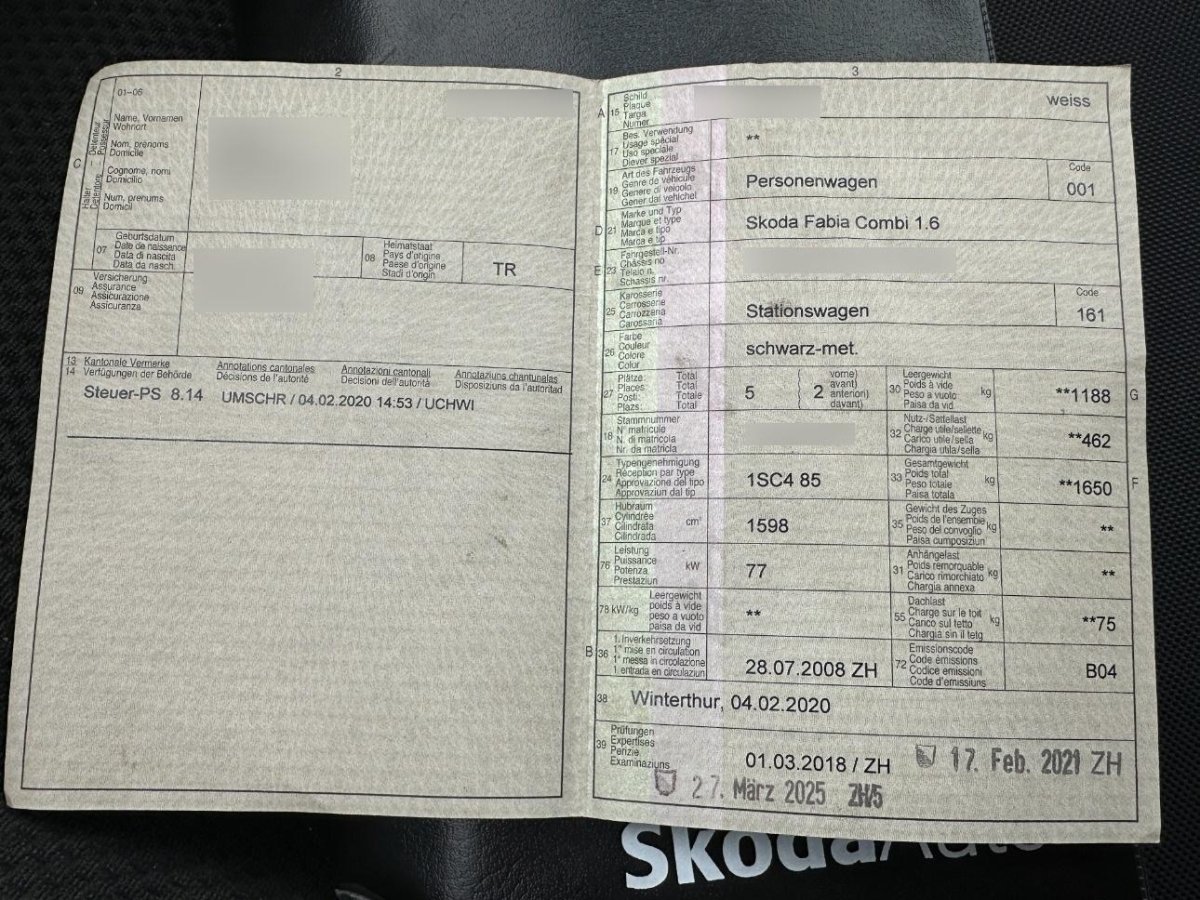 2
01-06
C
Halter
Détenteur
Detentore
Possessur
Name, Vornamen
Wohnort
Nom, prénoms
Domicile
Cognome, nomi
Domicilio
Num, prenums
Domicil
07
Geburtsdatum
Date de naissance
Data di nascita
Data da nasch.
08
Heimatstaat
Pays d'origine
Paese d'origine
Stadi d'origin
TR
09
Versicherung
Assurance
Assicurazione
Assicuranza
13 Kantonale Vermerke
14 Verfügungen der Behörde
Annotations cantonales
Décisions de l'autorité
Annotazioni cantonali
Decisioni dell'autorità
Annotaziuns chantunalas
Disposiziuns da l'autoritad
Steuer-PS 8.14 UMSCHR / 04.02.2020 14:53 / UCHWI
3
A 15
Schild
Plaque
Targa
Numer
weiss
17
Bes. Verwendung
Usage spécial
Uso speciale
Diever spezial
**
19
Art des Fahrzeugs
Genre de véhicule
Genere di veicolo
Gener dal vehichel
Personenwagen
Code
001
D 21
Marke und Typ
Marque et type
Marca e tipo
Marca e tip
Skoda Fabia Combi 1.6
E 23
Fahrgestell-Nr.
Châssis no
Telaio n.
Schassis nr.
25
Karosserie
Carrosserie
Carrozzeria
Carossaria
Stationswagen
Code
161
26
Farbe
Couleur
Colore
Color
schwarz-met.
27
Plätze
Places
Posti:
Plazs:
Total
Total
Totale
Total
5
2
vorne)
avant)
anteriori)
davant)
30
Leergewicht
Poids à vide
Peso a vuoto
Paisa da vid
kg
**1188
G
18
Stammnummer
N° matricule
N. di matricola
Nr. da matricla
32
Nutz-/Sattellast
Charge utile/sellette
Carico utile/sella
Chargia utila/sella
kg
**462
24
Typengenehmigung
Réception par type
Approvazione del tipo
Approvaziun dal tip
1SC4 85
33
Gesamtgewicht
Poids total
Peso totale
Paisa totala
kg
**1650
F
37
Hubraum
Cylindrée
Cilindrata
Cilindrada
cm³
1598
35
Gewicht des Zuges
Poids de l'ensemble
Peso del convoglio
Paisa cumposiziun
kg
**
76
Leistung
Puissance
Potenza
Prestaziun
kW
77
31
Anhängelast
Poids remorquable
Carico rimorchiato
Chargia annexa
kg
**
78 kW/kg
Leergewicht
poids à vide
peso a vuoto
paisa da vid
**
55
Dachlast
Charge sur le toit
Carico sul tetto
Chargia sin il tetg
kg
**75
B 36
1. Inverkehrsetzung
1re mise en circulation
1a messa in circolazione
1. entrada en circulaziun
28.07.2008 ZH
72
Emissionscode
Code émissions
Codice emissioni
Code d'emissiuns
B04
38
Winterthur, 04.02.2020
39
Prüfungen
Expertises
Perizie
Examinaziuns
01.03.2018 / ZH
17. Feb. 2021 ZH
27. März 2025 ZH/5
SkodaAuto